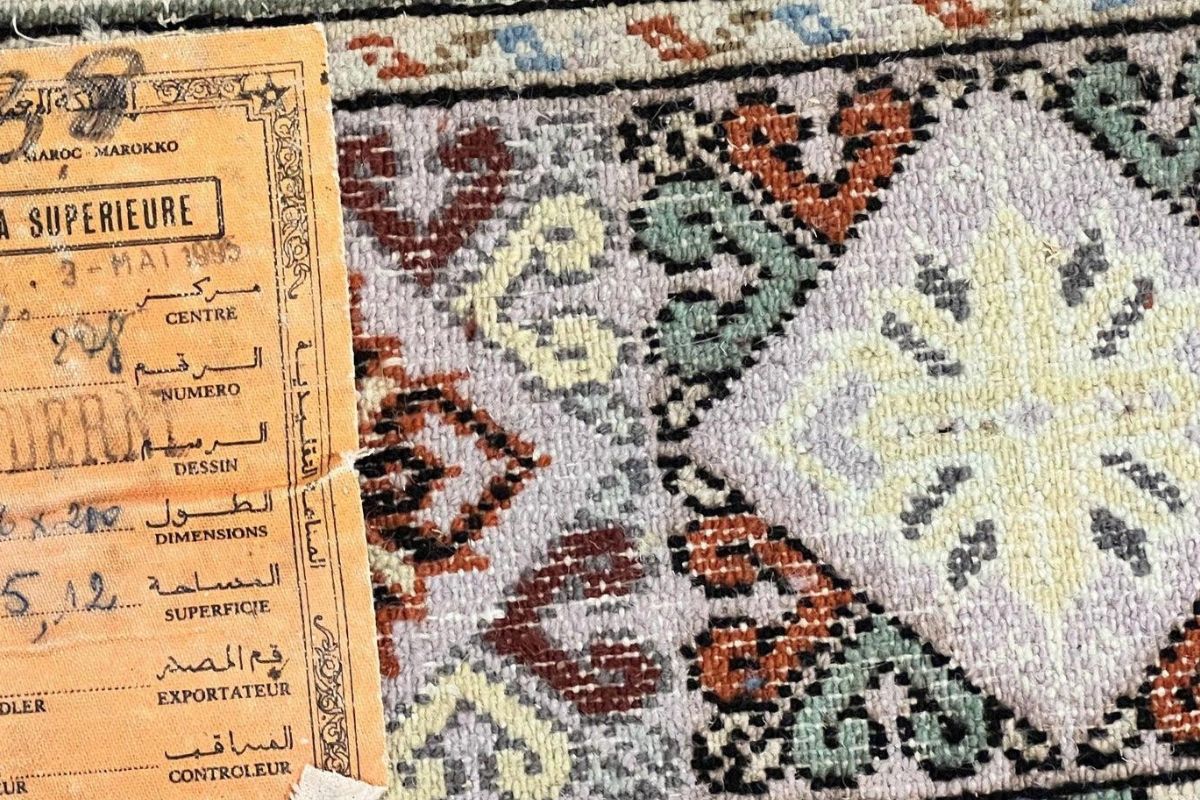 MAROC - MAROKKO
A SUPERIEURE
3 - MAI 1995
مركز
CENTRE
208
الرقم
NUMERO
DERN
الرسم
DESSIN
الطول
x 200
DIMENSIONS
المساحة
5,12
SUPERFICIE
المصدر
EXPORTATEUR
DLER
المراقب
CONTROLEUR
EUR
الصناعة التقليدية